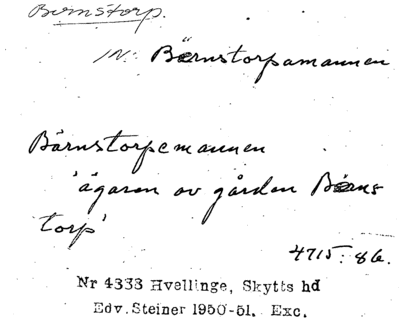 Bernstorp.
IN: Bärnstorpamannen
Bärnstorpemannen
'ägaren av gården Börns
torp'
4715: 86.
Nr 4333 Hvellinge, Skytts hd
Edv. Steiner 1950-51. Exc.